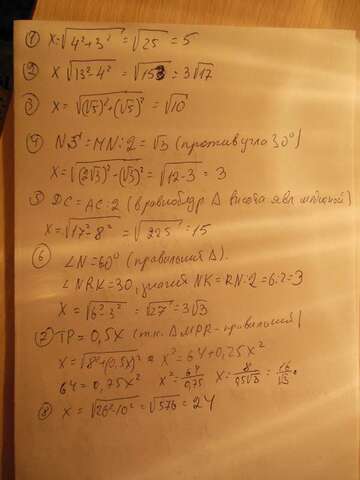 ① x=√4²+3² = √25 = 5
② x √13²-4² = √153 = 3√17
③ x = √(√5)²+(√5)² = √10
④ NS = MN:2 = √3 (против угла 30°)
x=√(2√3)²-(√3)² = √12-3 = 3
5 DC = AC:2 (в равнобедр Δ высота явл медианой)
x=√17²-8² = √225 = 15
⑥ ∠N=60° (правильный Δ).
∠NRK=30, значит NK=RN:2=6:2=3
x = √6²-3² = √27 = 3√3
⑦ TP = 0,5x (т.к. ΔMPR-правильный)
x=√8²+(0,5x)² x² = 64+0,25x²
64=0,75x² x²=64/0,75 x=8/0,5√3 = 16/√3
⑧ x = √26²-10² = √576 = 24